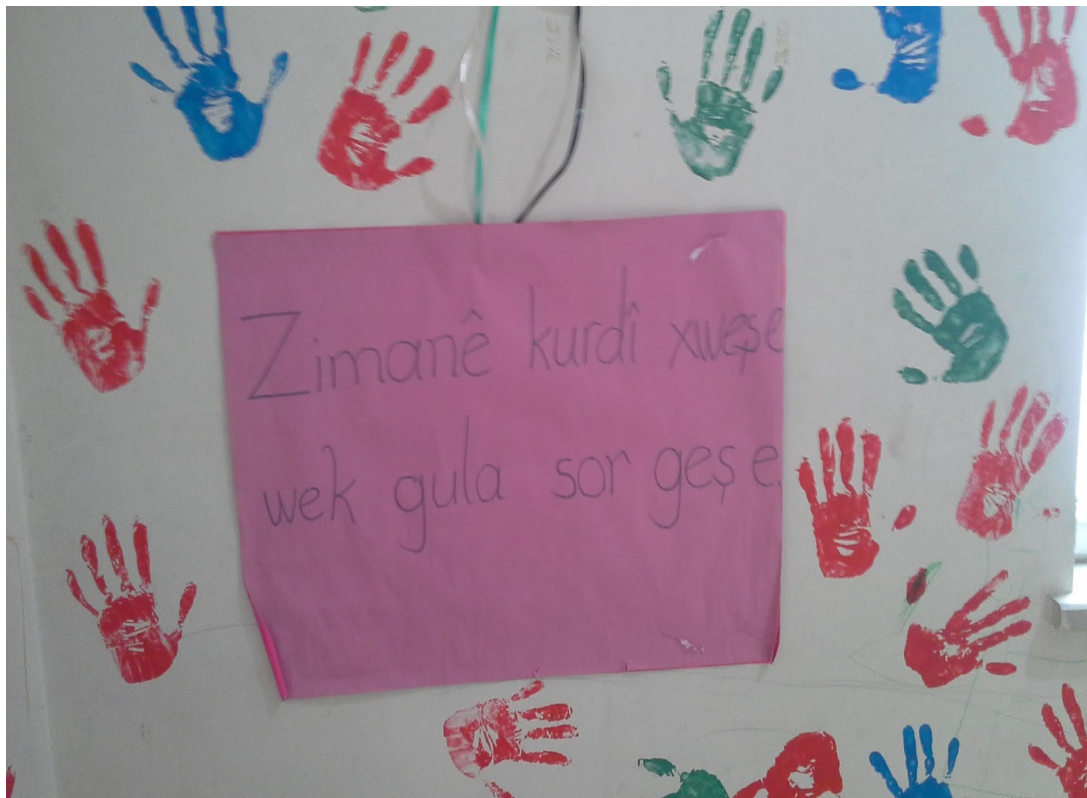 Zimanê kurdî xweşe
wek gula sor geşe.